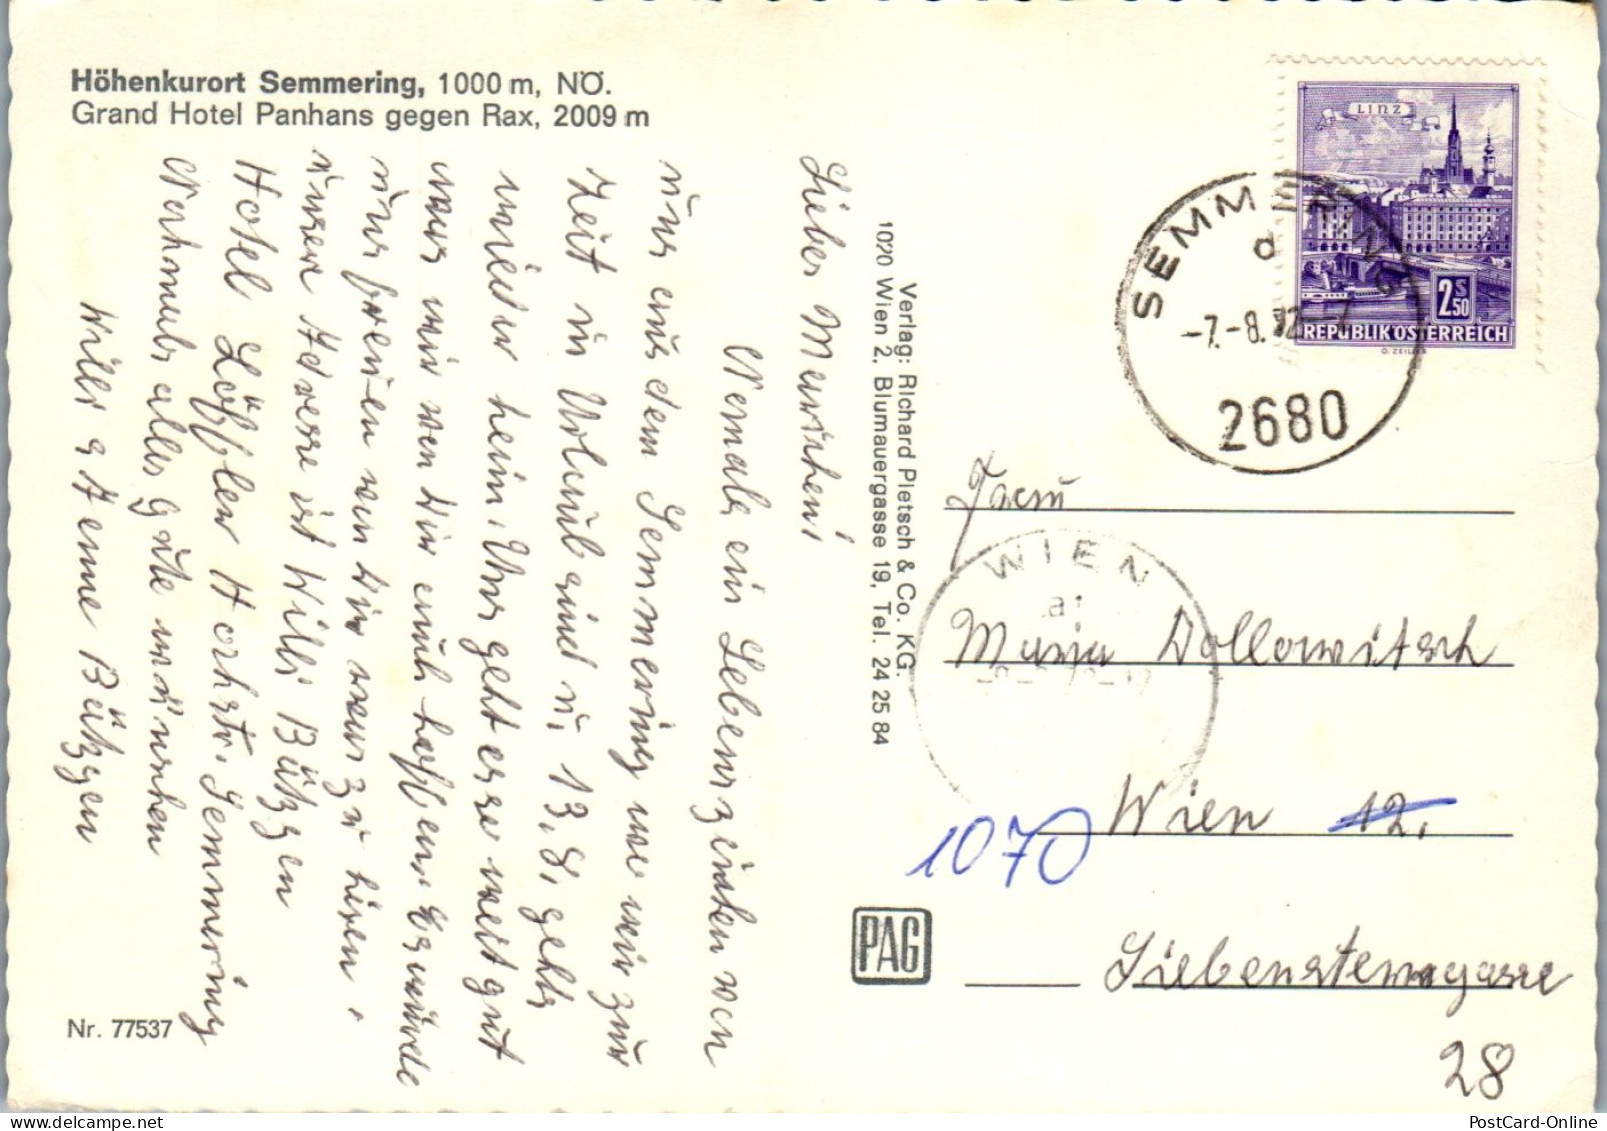 Höhenkurort Semmering, 1000 m, NÖ.
Grand Hotel Panhans gegen Rax, 2009 m
Lieber Mausichen!
Wernde ein Lebenszeichen von
uns aus dem Semmering wo wir zur
Zeit in Urlaub sind u. 13. 8. gehts
wieder heim. Uns geht es so weit gut
was wir von Dir auch hoffen. Es würde
uns freuen von Dir was zu hören.
unsere Adresse ist Willi Bützgen
Hotel Löffler Hochstr. Semmering
Nochmals alles Gute wünschen
Willi u Anne Bützgen
Nr. 77537
Verlag: Richard Pietsch & Co. KG.
1020 Wien 2, Blumauergasse 19, Tel. 24 25 84
PAG
LINZ
2 S 50
REPUBLIK ÖSTERREICH
O. ZEILLER
SEMMERING
d
-7.-8.72-
2680
WIEN
Frau
Maria Dollowitsch
Wien 12.
1070
Siebensterngasse
28
PostCard-Online